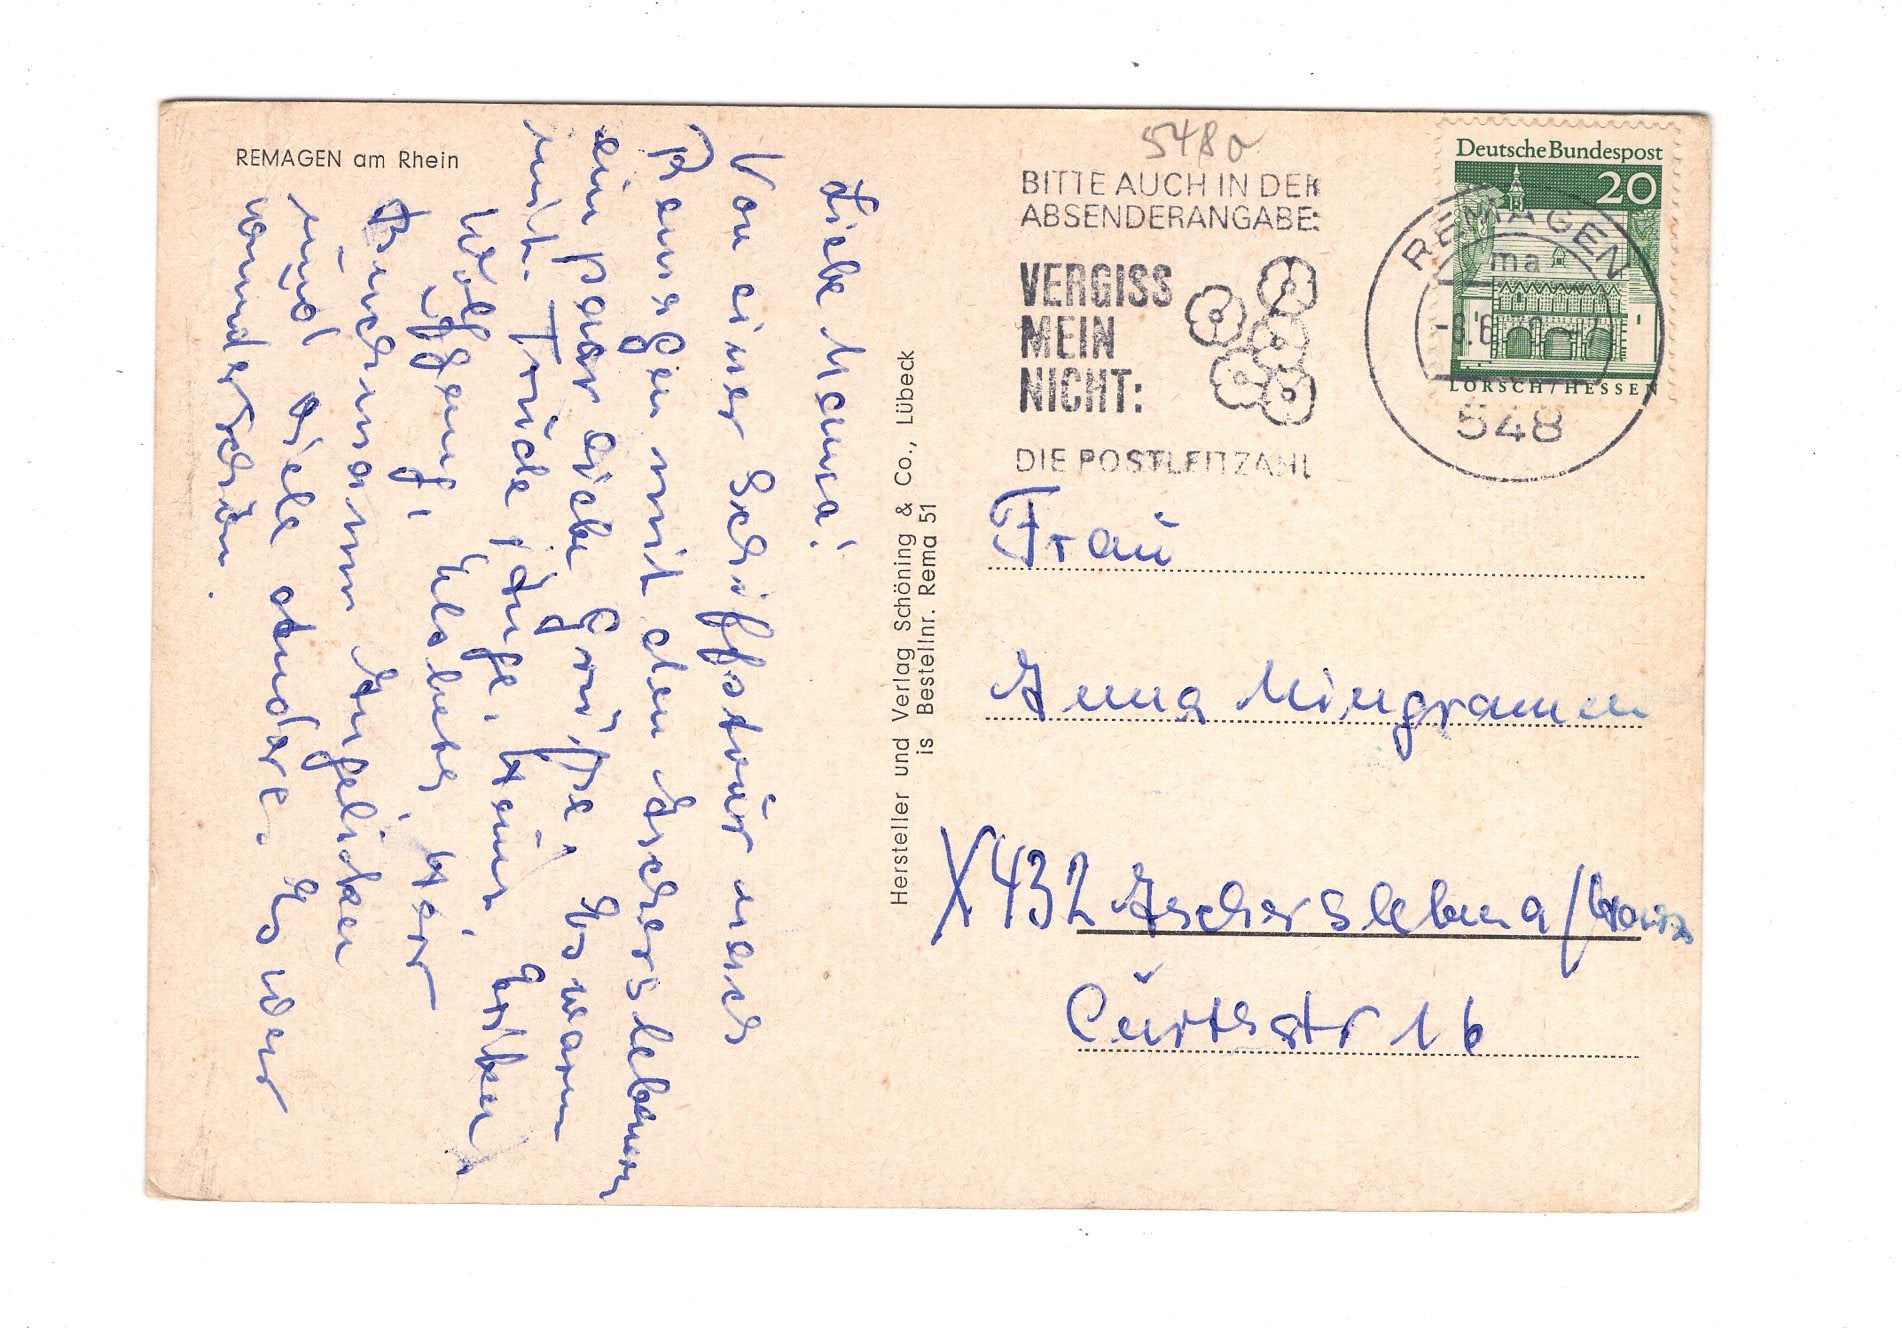 REMAGEN am Rhein
Liebe Mama!
Von einer Schiffstour nach
Remagen mit den Ascherslebenern
ein paar liebe Grüße. Es waren
mit: Trude, Inge, Heinz,
Wolfgang, Elsbeth, Herr
und viele andere. Es war
wunderschön.
Hersteller und Verlag Schöning & Co., Lübeck
is Bestellnr. Rema 51
548
BITTE AUCH IN DER
ABSENDERANGABE:
VERGISS
MEIN
NICHT:
DIE POSTLEITZAHL
Deutsche Bundespost
20
LORSCH/HESSEN
REMAGEN
ma
548
Frau
Anna Mingramm
X432 Aschersleben a/Harz
Curthstr 16